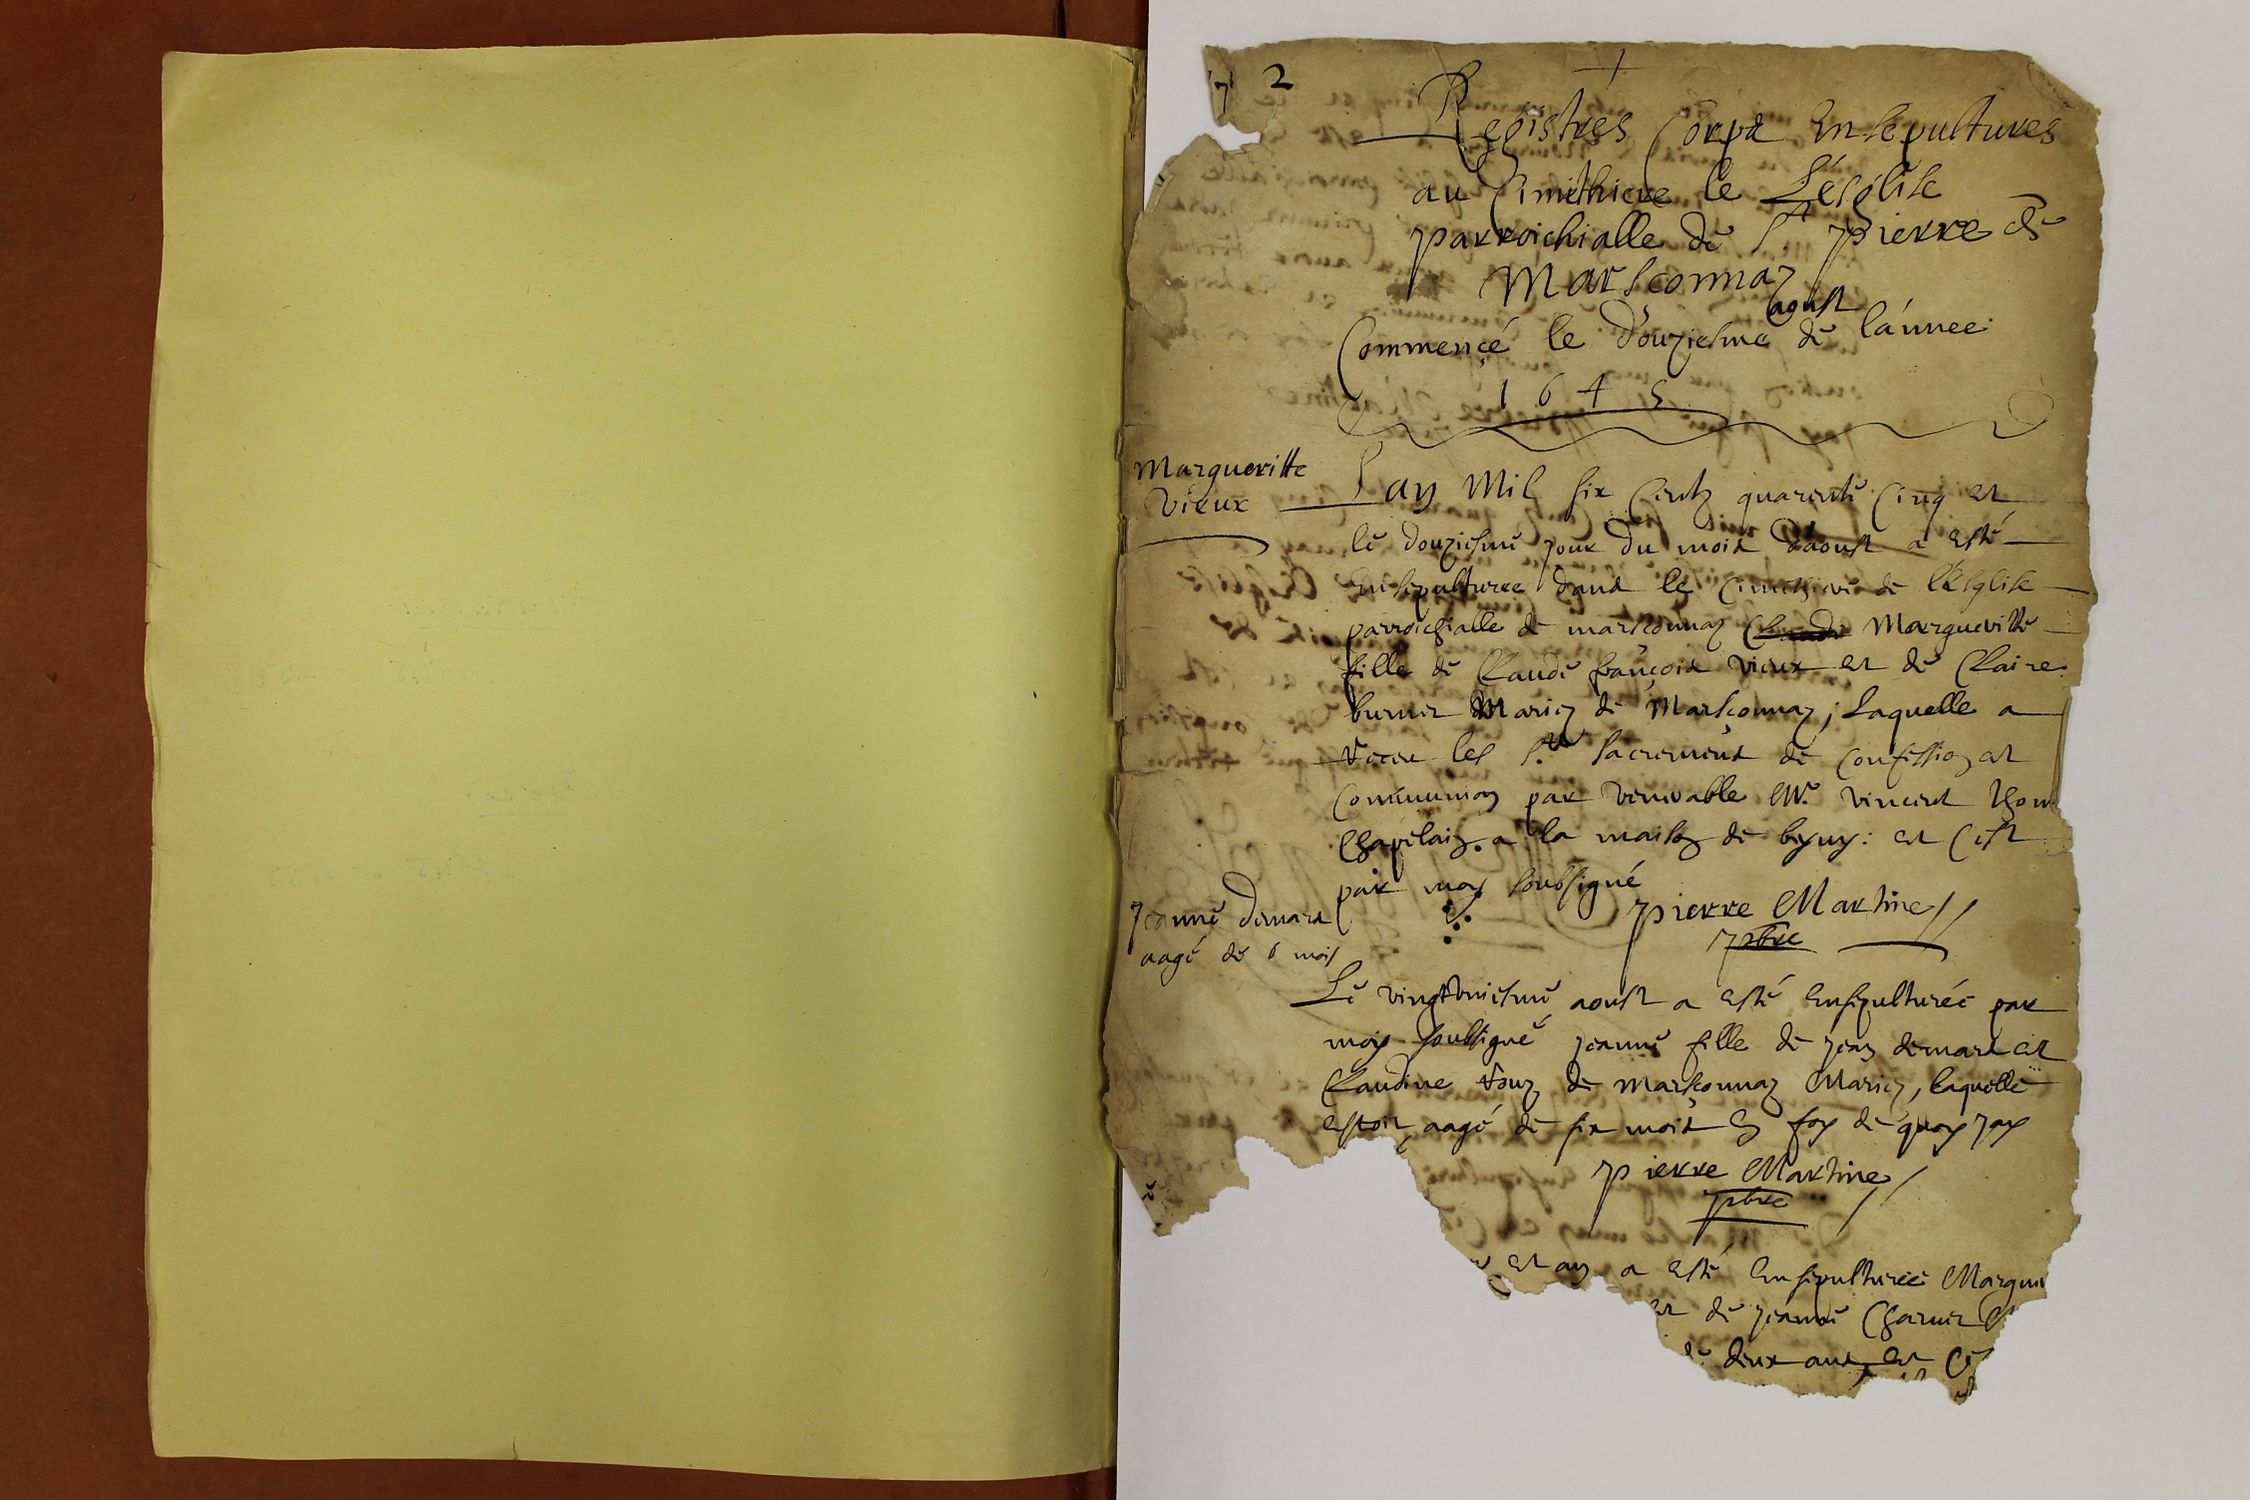 2
Registres Corps Ensepultures
au Cimithiere de Lésglise
parroichialle de St pierre de
Marsconnaz
aoust
Commencé le Douziesme de lánnee
1645
Margueritte
Vieux
Lan Mil six Centz quarente Cinq et
le douziesme jour du mois daoust a esté
Ensepulturee dans le Cimithiere de lEsglise
parroichialle de marsconnaz Margueritte
fille de Claude françois vieux et de Claire
burnet Mariez de Marsconnaz, laquelle a
receu les Sts Sacrements de Confession et
Communion par venerable Mre Vincent
Chapelain a la maison de et Cest
par moy soubsigné
pierre Martine
pbre
Jeanne Demard
aagé de 6 mois
Le vingtuniesme aoust a esté Ensepulturée par
moy soubsigné jeanne fille de jean demard et
Claudine de Marsconnaz Mariez, laquelle
estoit aagé de six mois En foy de quoy jay
pierre Martine
pbre
et an a esté Ensepulturée Margue
et de jeanne Charnet
deux ans et Ce